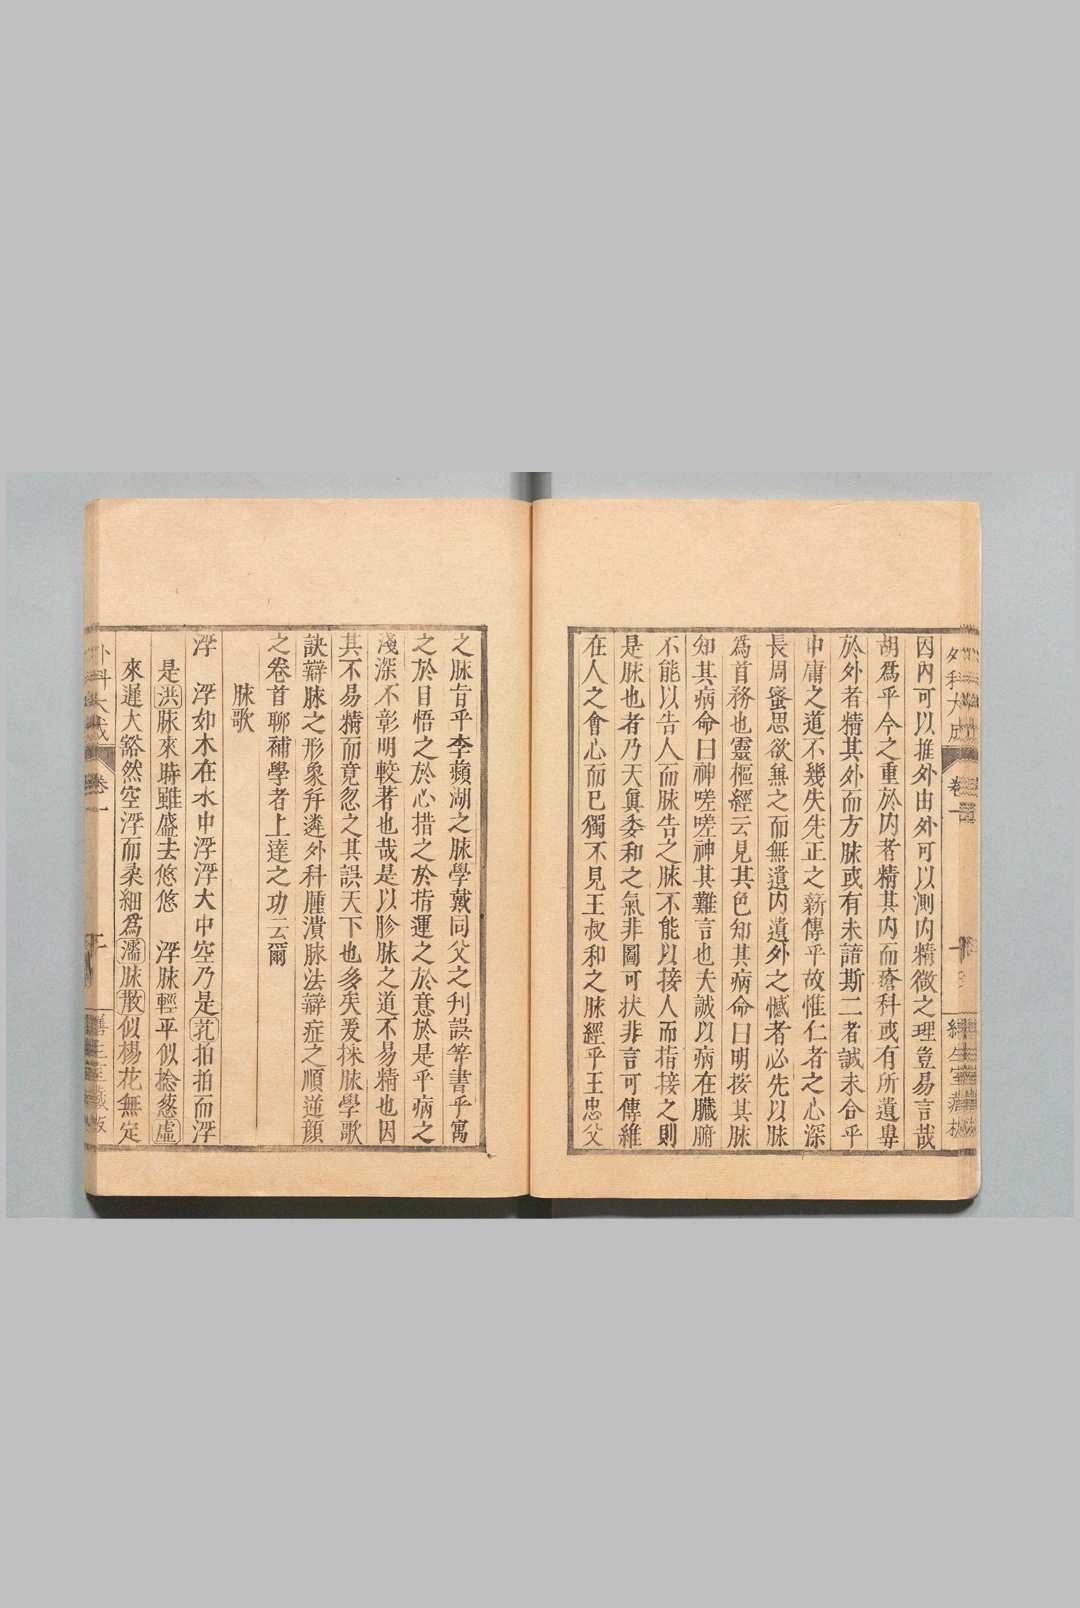 外科大成
卷一
因內可以推外由外可以測內精微之理豈易言哉
胡爲乎今之重於內者精其內而瘡科或有所遺專
於外者精其外而方脉或有未諳斯二者誠未合乎
中庸之道不幾失先正之薪傳乎故惟仁者之心深
長周蜜思欲無之而無遺內遺外之憾者必先以脉
爲首務也靈樞經云見其色知其病命曰明按其脉
知其病命曰神嗟嗟神其難言也夫誠以病在臟腑
不能以告人而脉告之脉不能以接人而指接之則
是脉也者乃天眞委和之氣非圖可状非言可傳維
在人之會心而已獨不見王叔和之脉經乎王忠父
之脉旨乎李蘋湖之脉學戴同父之刋誤等書乎寓
之於目悟之於心措之於指運之於意於是乎病之
淺深不彰明較著也哉是以胗脉之道不易精也因
其不易精而竟忽之其誤天下也多矣爰採脉學歌
訣辯脉之形象幷遴外科腫潰脉法辯症之順逆顔
之卷首聊補學者上達之功云爾
脉歌
浮 浮如木在水中浮浮大中空乃是芤拍拍而浮
是洪脉來時雖盛去悠悠 浮脉輕平似捻葱虛
來遲大豁然空浮而柔細爲濡脉散似楊花無定
外科大成
卷一